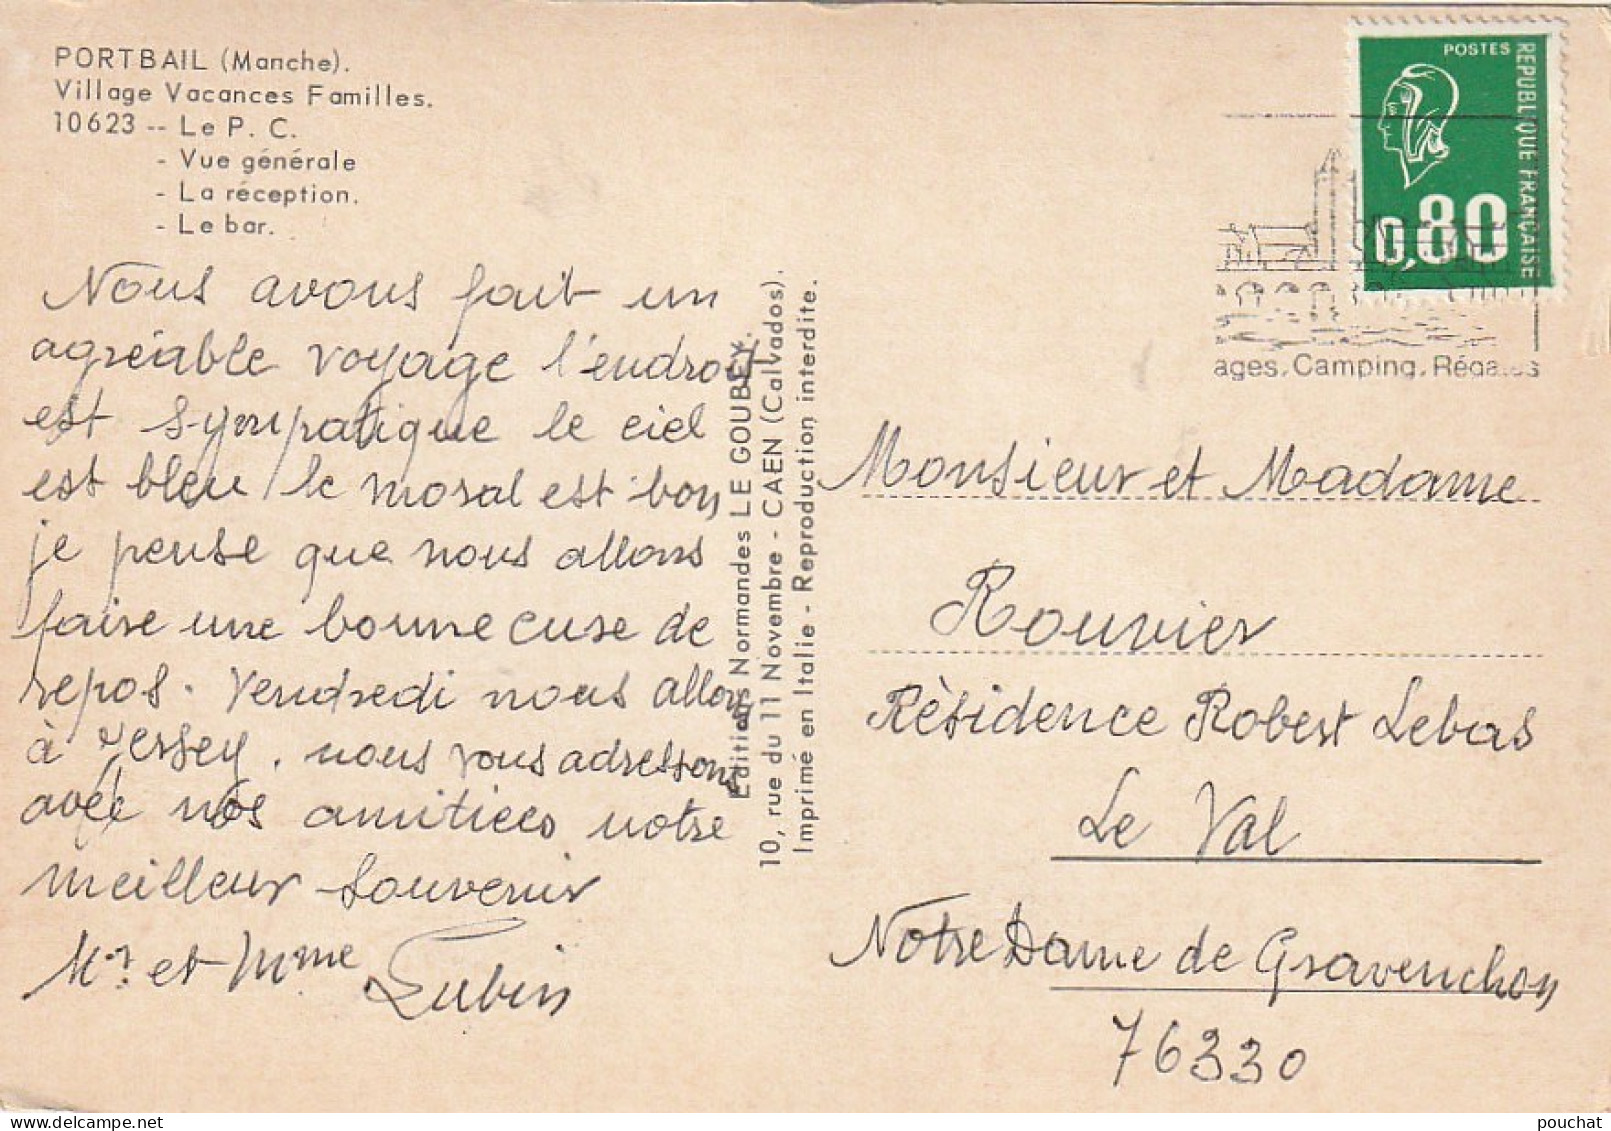 PORTBAIL (Manche).
Village Vacances Familles.
10623 -- Le P. C.
- Vue générale
- La réception.
- Le bar.
Nous avons fait un
agréable voyage l'endroit
est sympatique le ciel
est bleu le moral est bon
je pense que nous allons
faire une bonne cure de
repos. Vendredi nous allons
à Jersey. nous vous adressons
avec nos amitiées notre
meilleur souvenir
Mr et Mme Lubin
Editions Normandes LE GOUBEY.
10, rue du 11 Novembre - CAEN (Calvados).
Imprimé en Italie - Reproduction interdite.
POSTES
REPUBLIQUE FRANÇAISE
0,80
ages. Camping. Régates
Monsieur et Madame
Rouvier
Résidence Robert Lebas
Le Val
Notre Dame de Gravenchon
76330
pouchat